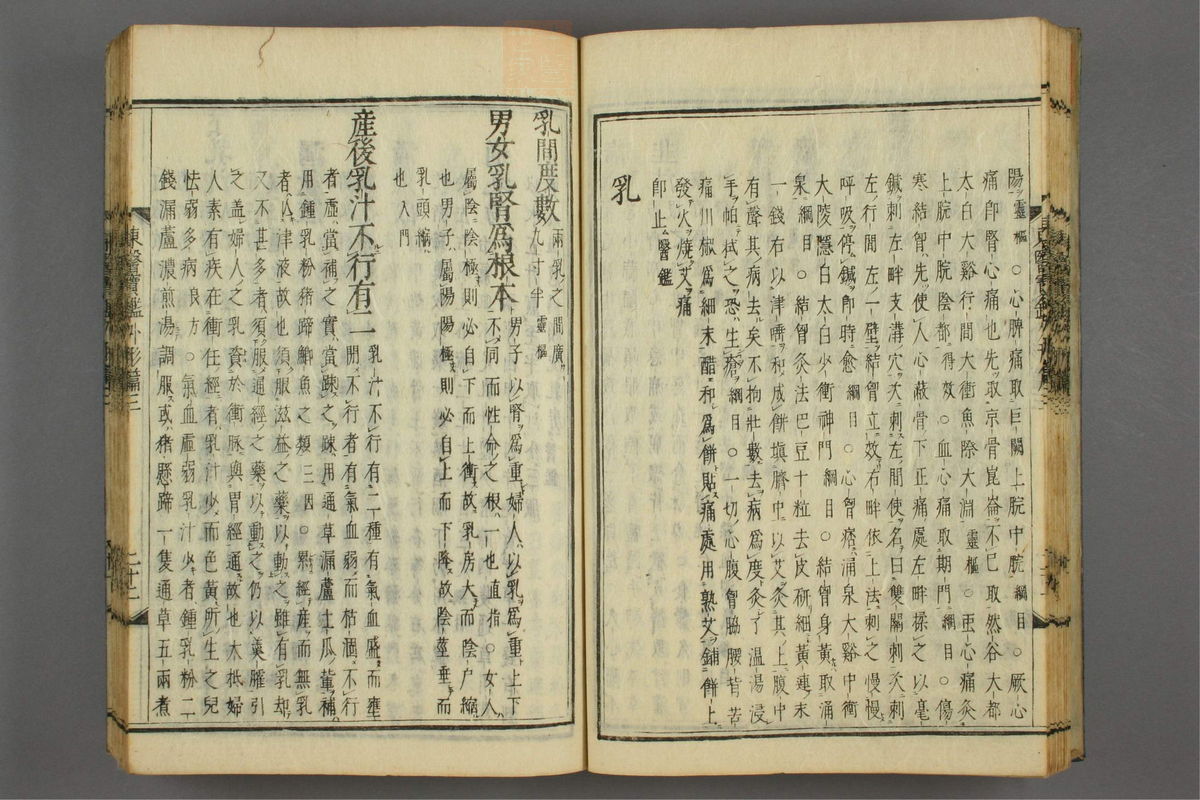 陽靈樞○心脾痛取巨闕上脘中脘綱目○厥心
痛卽腎心痛也先取京骨崑崙不已取然谷大都
太白大谿行間大衝魚際大淵靈樞○亞心痛灸
上脘中脘陰都得效○血心痛取期門綱目○傷
寒結胷先使人心蔽骨下正痛處左畔揉之以毫
鍼刺左畔支溝穴次刺左間使名曰雙關刺次刺
左行間左一壁結胷立效右畔依上法刺之慢慢
呼吸停鍼卽時愈綱目○心胷痞涌泉大谿中衝
大陵隱白太白少衝神門綱目○結胷身黃取涌
泉綱目○結胷灸法巴豆十粒去皮研細黃連末
一錢右以津唾和成餠塡臍中以艾灸其上腹中
有聲其病去矣不拘壯數去病爲度灸了溫湯浸
手帕拭之恐生瘡綱目○一切心腹胷脇腰背苦
痛川椒爲細末醋和爲餠貼痛處用熟艾鋪餠上
發火燒艾痛
卽止醫鑑
乳
乳間度數兩乳之間廣九寸半靈樞
男女乳腎爲根本男子以腎爲重婦人以乳爲重上下不同而性命之根一也直指○女人
屬陰陰極則必自下而上衝故乳房大而陰户縮
也男子屬陽陽極則必自上而下降故陰莖垂而
乳頭縮
也入門
産後乳汁不行有二乳汁不行有二種有氣血盛而壅閉不行者有氣血弱而枯涸不行
者虛當補之實當踈之踈用通草漏蘆土瓜輩補
用鍾乳粉猪蹄鯽魚之類三因○累經産而無乳
者亡津液故也須服滋益之藥以動之雖有乳却
又不甚多者須服通經之藥以動之仍以羹臛引
之盖婦人之乳資於衝脉與胃經通故也大抵婦
人素有疾在衝任經者乳汁少而色黃所生之兒
怯弱多病良方○氣血虛弱乳汁少者鍾乳粉二
錢漏蘆濃煎湯調服或猪懸蹄一隻通草五兩煮
東醫寶鑑外形篇三
二十二